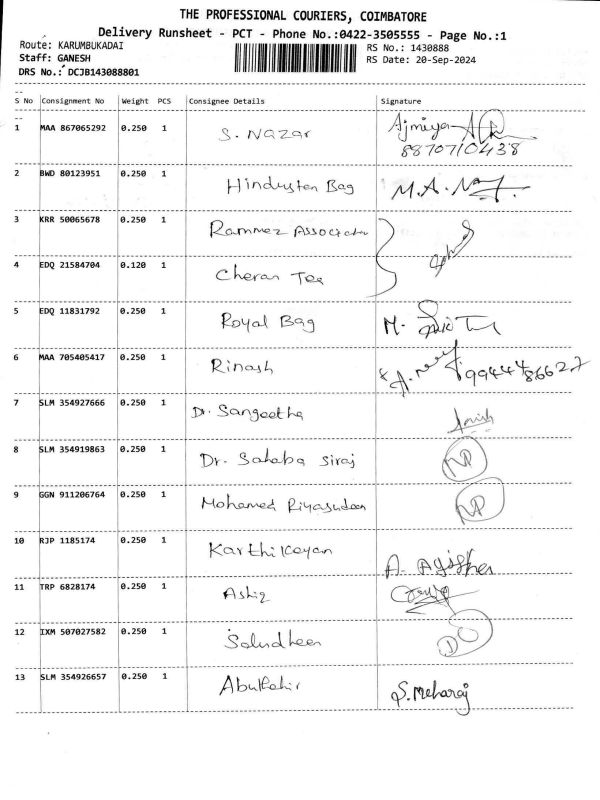 THE PROFESSIONAL COURIERS, COIMBATORE
Delivery Runsheet - PCT - Phone No.:0422-3505555 - Page No.:1
Route: KARUMBUKADAI RS No.: 1430888
Staff: GANESH RS Date: 20-Sep-2024
DRS No.: DCJB143088801
S No Consignment No Weight PCS Consignee Details Signature
1 MAA 867065292 0.250 1 S. Nazar Ajmiya
8870710438
2 BWD 80123951 0.250 1 Hindustan Bag M.A.
3 KRR 50065678 0.250 1 Rammez Associate
4 EDQ 21584704 0.120 1 Cheran Tea
5 EDQ 11831792 0.250 1 Royal Bag M.
6 MAA 705405417 0.250 1 Rinash 9944486627
7 SLM 354927666 0.250 1 Dr. Sangeetha
8 SLM 354919863 0.250 1 Dr. Sahaba Siraj NP
9 GGN 911206764 0.250 1 Mohamed Riyasudeen NP
10 RJP 1185174 0.250 1 Karthikeyan A.
11 TRP 6828174 0.250 1 Ashiq
12 IXM 507027582 0.250 1 Saludheen
13 SLM 354926657 0.250 1 Abuthahir S. Meharaj